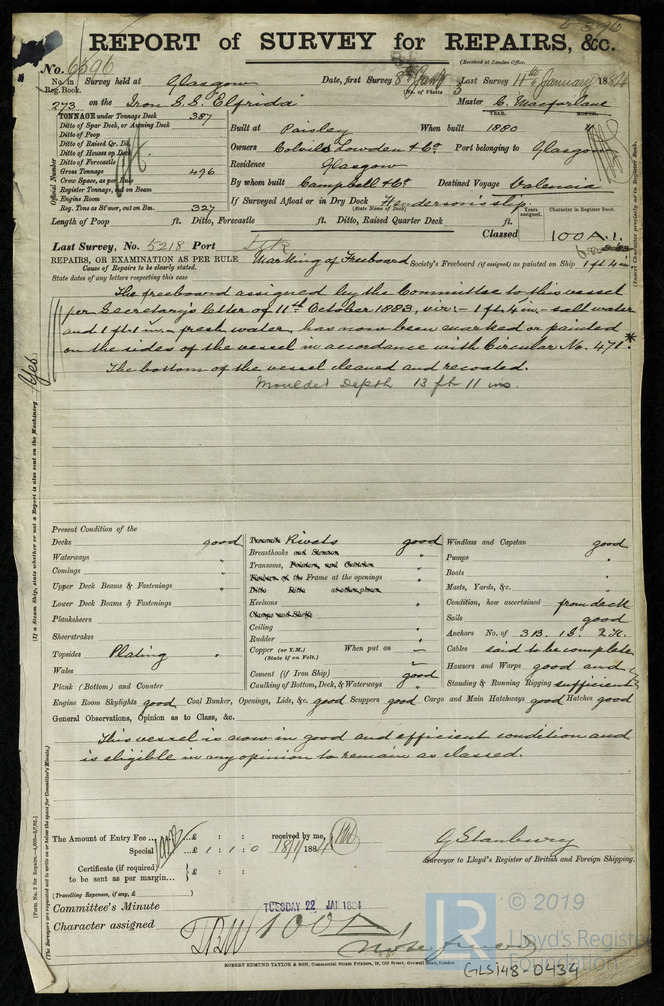 REPORT of SURVEY for REPAIRS, &c.
(Received at London Office.
No. 6596
No. in Survey held at Glasgow Date, first Survey 8th Jany Last Survey 11th January 1884
Reg. Book. (No. of Visits 3
273 on the Iron S.S. Elfrida Master C. Macfarlane
TONNAGE under Tonnage Deck 387
Ditto of Spar Deck, or Awning Deck
Ditto of Poop
Ditto of Raised Qr. Dk.
Ditto of Houses on Deck
Ditto of Forecastle
Gross Tonnage 496
Crew Space, as per Rule
Register Tonnage, cut on Beam
Engine Room
Reg. Tons as St'mer, cut on Bm. 327
Official Number
YEAR. MONTH.
Built at Paisley When built 1880 4
Owners Colvils Lowden & Co Port belonging to Glasgow
Residence Glasgow
By whom built Campbell & Co. Destined Voyage Valencia
If Surveyed Afloat or in Dry Dock Henderson's slip.
(State Name of Dock)
Years assigned. Character in Register Book.
Length of Poop ft. Ditto, Forecastle ft. Ditto, Raised Quarter Deck ft.
Classed 100A.1.
Last Survey, No. 5218 Port
REPAIRS, OR EXAMINATION AS PER RULE Marking of Freeboard Society's Freeboard (if assigned) as painted on Ship 1 ft 4 in
Cause of Repairs to be clearly stated.
State dates of any letters respecting this case
The freeboard assigned by the Committee to this vessel
per Secretary's letter of 11th October 1883, viz:- 1 ft 4 in - salt water
and 1 ft 1 in - fresh water, has now been marked or painted
on the sides of the vessel in accordance with Circular No. 471.*
The bottom of the vessel cleaned and recoated.
Moulded Depth 13 ft 11 ins.
Yes.
(If a Steam Ship, state whether or not a Report is also sent on the Machinery
Present Condition of the
Decks good
Waterways "
Comings "
Upper Deck Beams & Fastenings "
Lower Deck Beams & Fastenings
Planksheers
Sheerstrakes
Topsides Plating "
Wales
Plank (Bottom) and Counter
Treenails Rivets good
Breasthooks and Stemson "
Transoms, Pointers, and Crutches "
Timbers of the Frame at the openings "
Ditto Ditto at other places
Keelsons "
Clamps and Shelfs
Ceiling "
Rudder "
Copper (or Y.M.) When put on —
(State if on Felt.)
Cement (if Iron Ship) good
Caulking of Bottom, Deck, & Waterways "
Windlass and Capstan good
Pumps "
Boats "
Masts, Yards, &c. "
Condition, how ascertained from deck
Sails good
Anchors No. of 3B. 1S. 2K.
Cables said to be complete
Hawsers and Warps good and
Standing & Running Rigging sufficient
Engine Room Skylights good Coal Bunker, Openings, Lids, &c. good Scuppers good Cargo and Main Hatchways good Hatches good
General Observations, Opinion as to Class, &c.
This vessel is now in good and efficient condition and
is eligible in my opinion to remain as classed.
The Amount of Entry Fee ... £ : : received by me,
Special £ 1 : 1 : 0 18/1/1884
Certificate (if required) £ : :
to be sent as per margin...
(Travelling Expenses, if any, £ )
G Stanbury
Surveyor to Lloyd's Register of British and Foreign Shipping.
Committee's Minute TUESDAY 22 JAN 1884
Character assigned 100A1
ROBERT EDMUND TAYLOR & SON, Commercial Steam Printers, 19, Old Street, Goswell Road, London.
(The Surveyors are requested not to write on or below the space for Committee's Minute.)
© 2019
LR
Lloyd's Register
Foundation
(GLS)148-0434